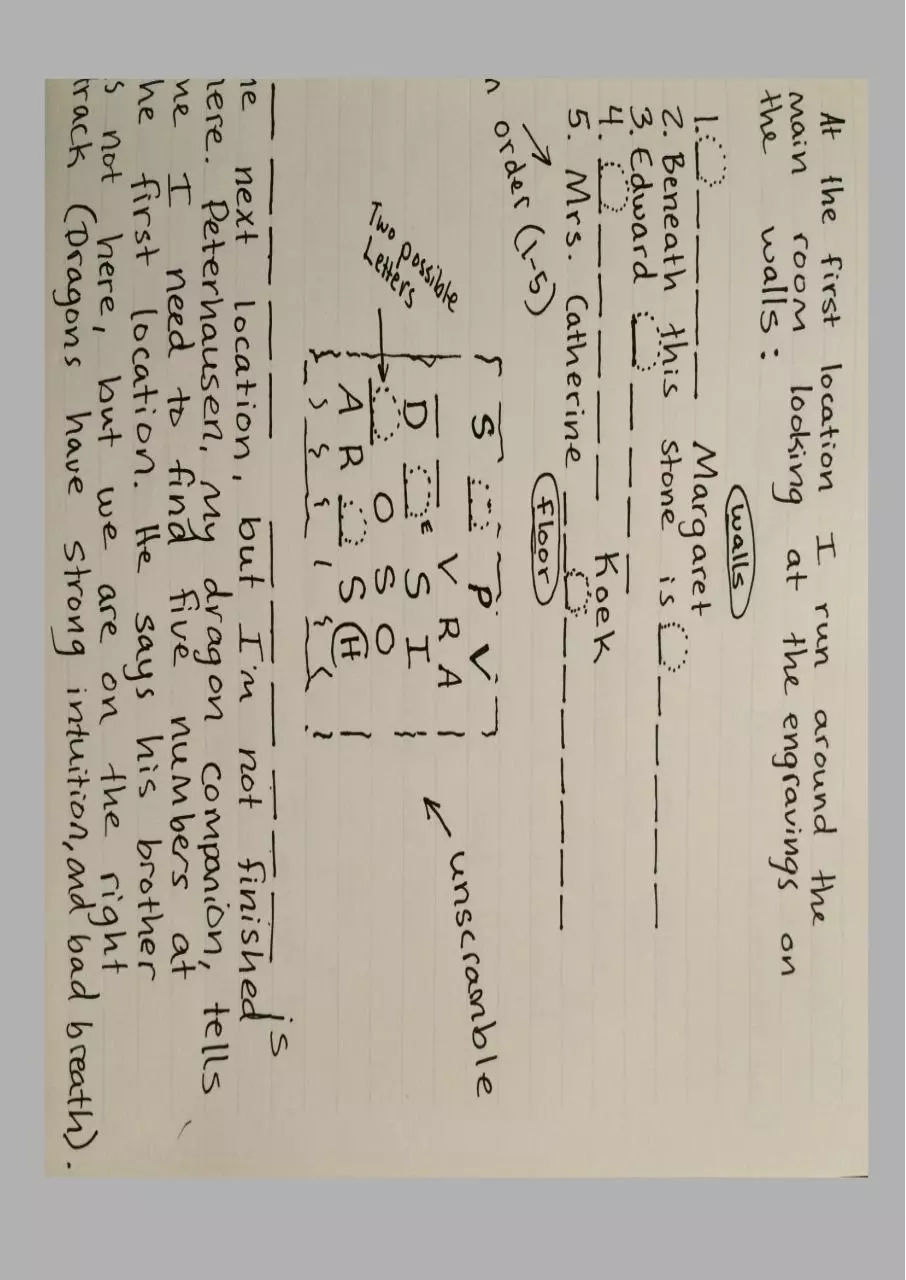 At the first location I run around the
main room looking at the engravings on
the walls:
walls
1. _ _ _ _ _ Margaret
2. Beneath this stone is _ _ _ _ _ _
3. Edward _ _ _ _ _
4. _ _ _ _ _ _ Koek
5. Mrs. Catherine _ _ _ _ _ _ _ _
floor
order (1-5)
unscramble
S _ P V
V R A
D _ E S I
_ O S O
A R _ S H
Two possible
Letters
is
next location, but I'm not finished
here. Peterhausen, my dragon companion, tells
me I need to find five numbers at
the first location. He says his brother
is not here, but we are on the right
track (Dragons have strong intuition, and bad breath).